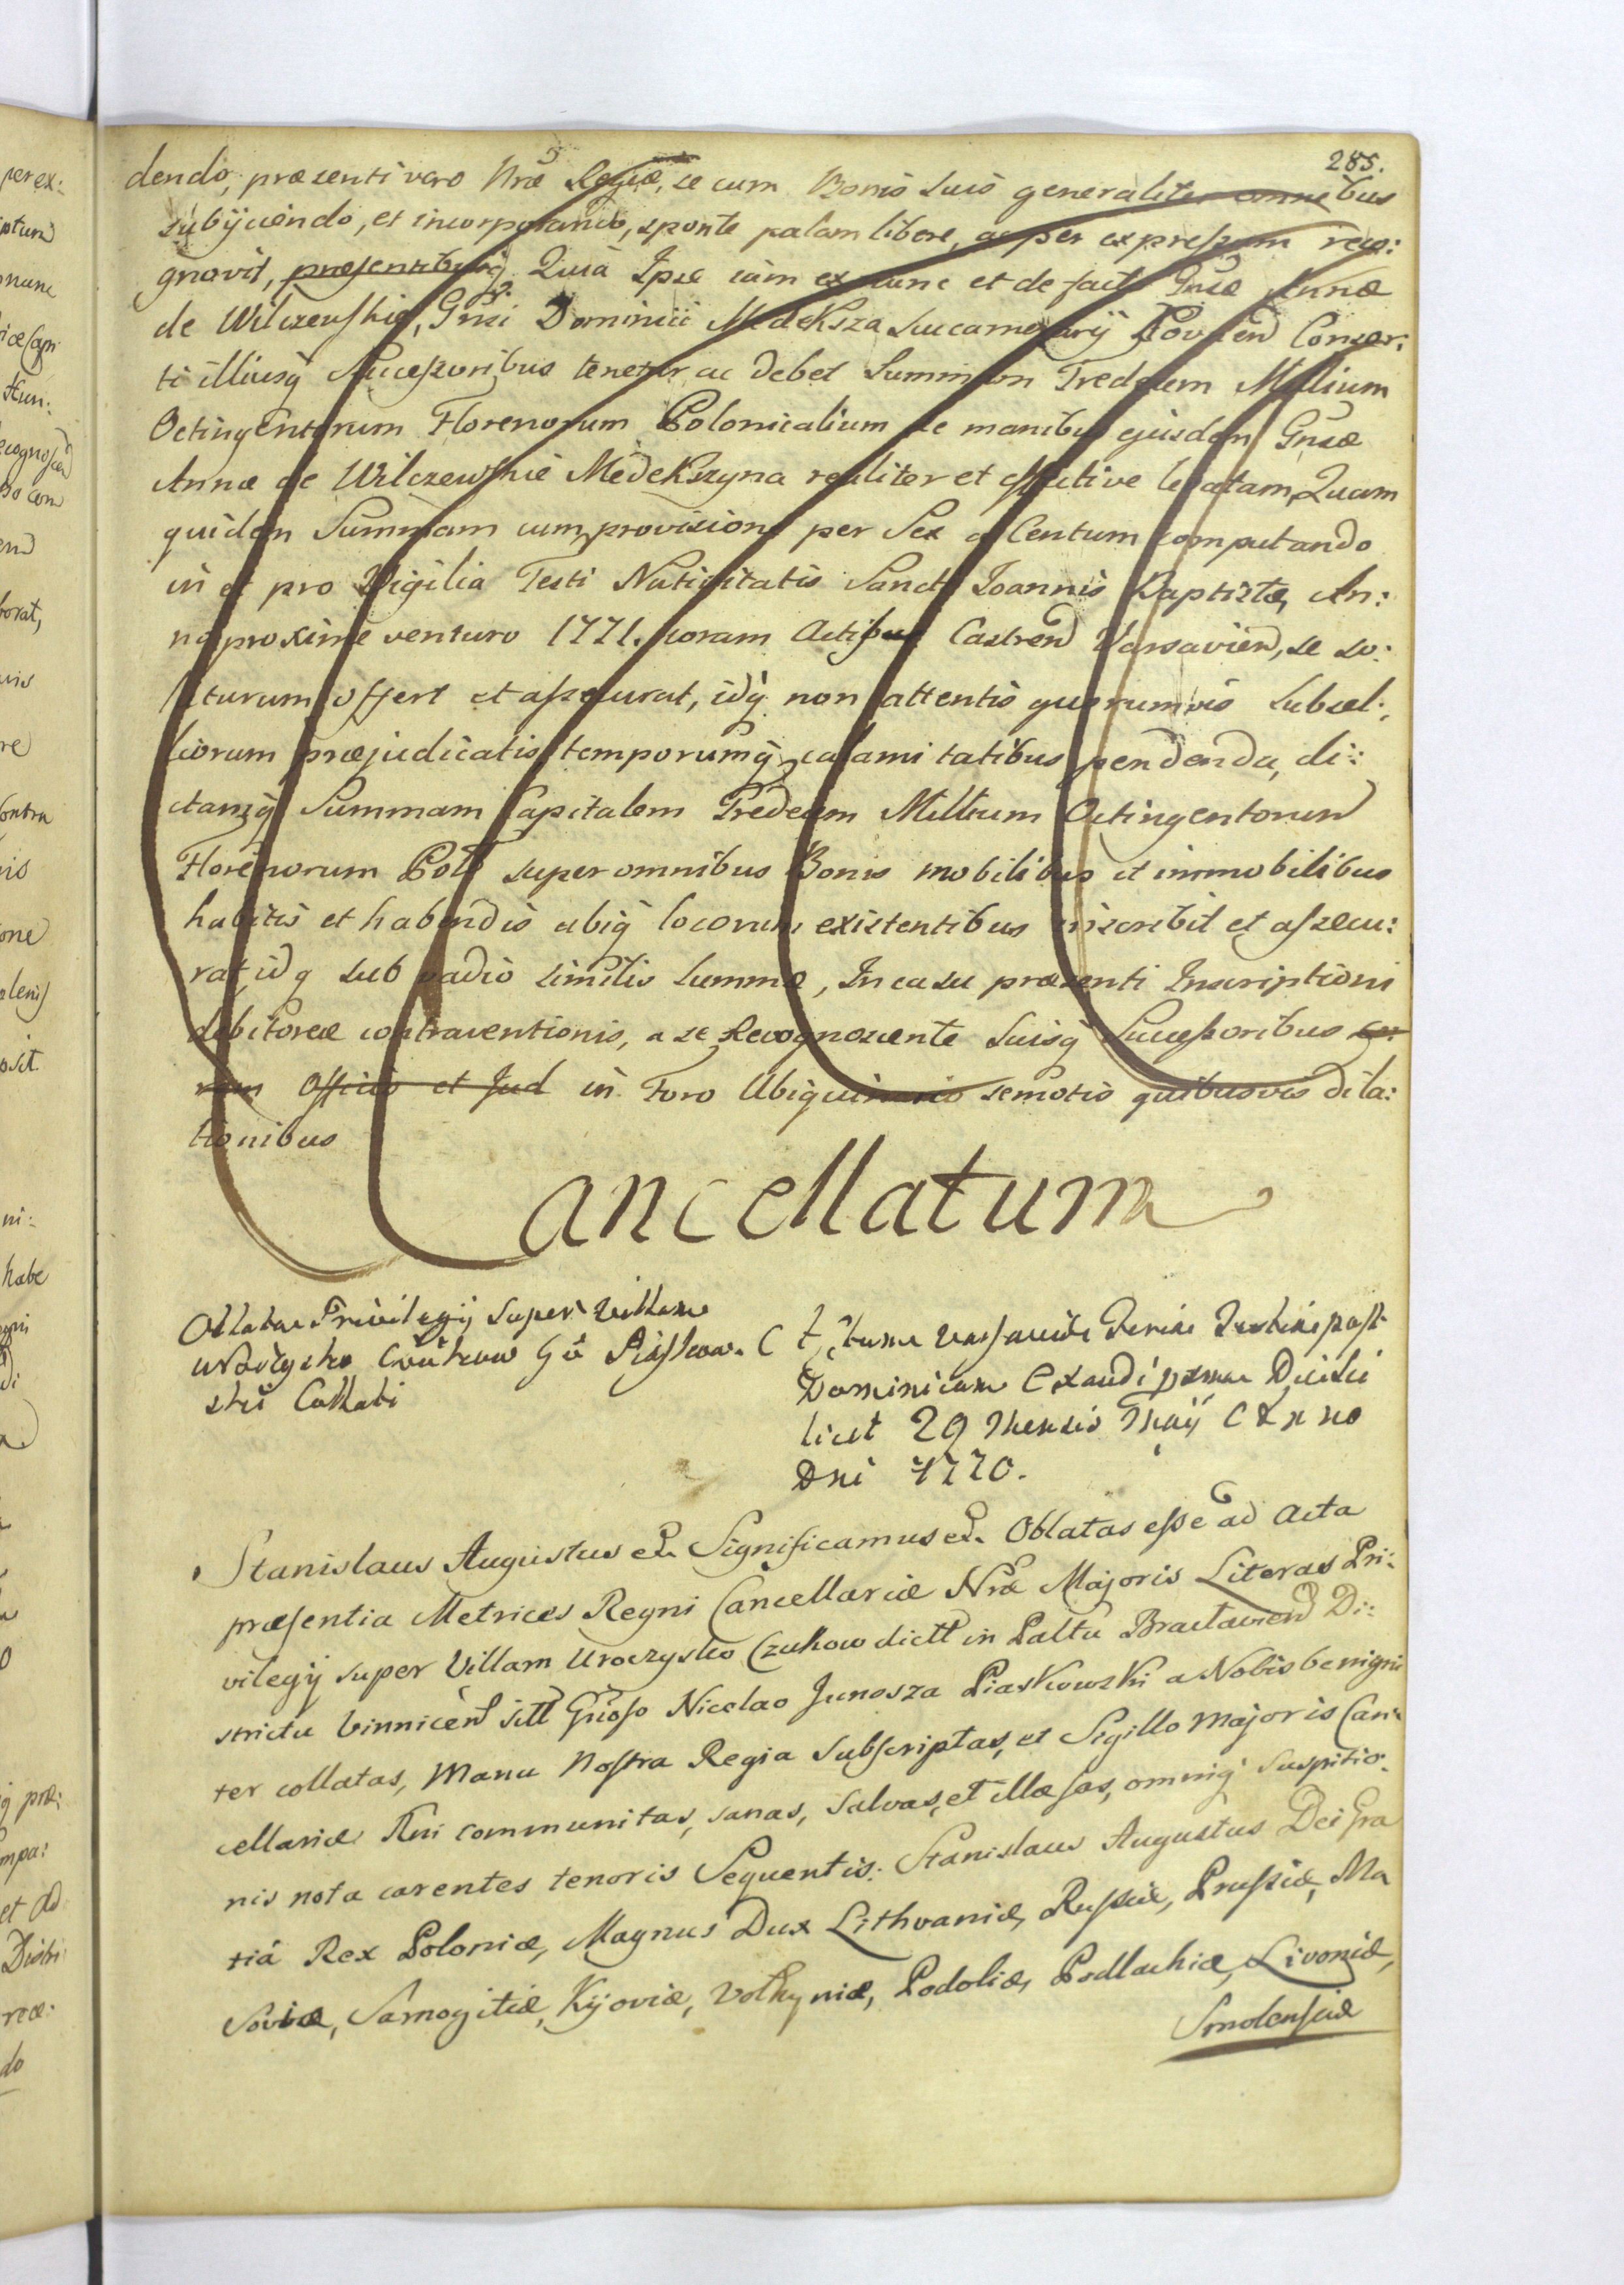 285.
dendo, præsenti vero Nræ Regiæ, se cum Bonis suis generaliter omnibus
subijciendo, et incorporando, sponte palam libere, ac per expressum reco:
gnovit, præsentibusq Quia Ipse iam ex nunc et de facto Gnsæ Annæ
de Wilczewskie, Gnsi Dominici Medeksza Succamerarij Kovnen Consor:
ti illiusq Successoribus tenetur ac debet Summam Tredecim Millium
Octingentorum Florenorum Polonicalium de manibus ejusdem Gnsæ
Annæ de Wilczewskie Medekszyna realiter et effective levatam, Quam
quidem Summam cum provisione per Sex a Centum computando
in et pro Vigilia Festi Nativitatis Sancti Joannis Baptistæ, An:
no proxime venturo 1771. coram Actibus Castren Varsavien, se so:
luturum offert et assecurat, idq non attentis quorumvis subsel:
liorum præjudicatis, temporumq calamitatibus pendenda, di:
ctamq Summam Capitalem Tredecim Millium Octingentorum
Florenorum Poll super omnibus Bonis mobilibus et immobilibus
habitis et habendis ubiq locorum existentibus inscribit et assecu:
rat, idq sub vadio similis summæ, In casu præsenti Inscriptioni
debitoreæ contraventionis, a se Recognoscente suisq Successoribus co:
ram Officio et Jud in Foro Ubiquinario semotis quibusvis dila:
tionibus
Cancellatum
Oblata Privilegij super Villam
Uroczysko Czukow Gō Piaskow.
ski Collati
Actum Varsaviæ Feria Tertia post
Dominicam Exaudi pxma Die sci
licet 29 Mensis Maij Anno
Dni 1770.
Stanislaus Augustus et. Significamus et. Oblatas esse ad Acta
præsentia Metrices Regni Cancellariæ Nræ Majoris Literas Pri:
vilegij super Villam Uroczysko Czukow dictt in Palttu Braclavien Di:
strictu Vinnicen sitt Gnoso Nicolao Junosza Piaskowski a Nobis benigni
ter collatas, Manu Nostra Regia subscriptas, et Sigillo Majoris Can:
cellariæ Rni communitas, sanas, salvas, et illæsas, omniq suspitio:
nis nota carentes tenoris Sequentis: Stanislaus Augustus Dei Gra
tiá Rex Poloniæ, Magnus Dux Lithvaniæ, Russiæ, Prussiæ, Ma
soviæ, Samogitiæ, Kijoviæ, Volhyniæ, Podoliæ, Podlachiæ, Livoniæ,
Smolensciæ